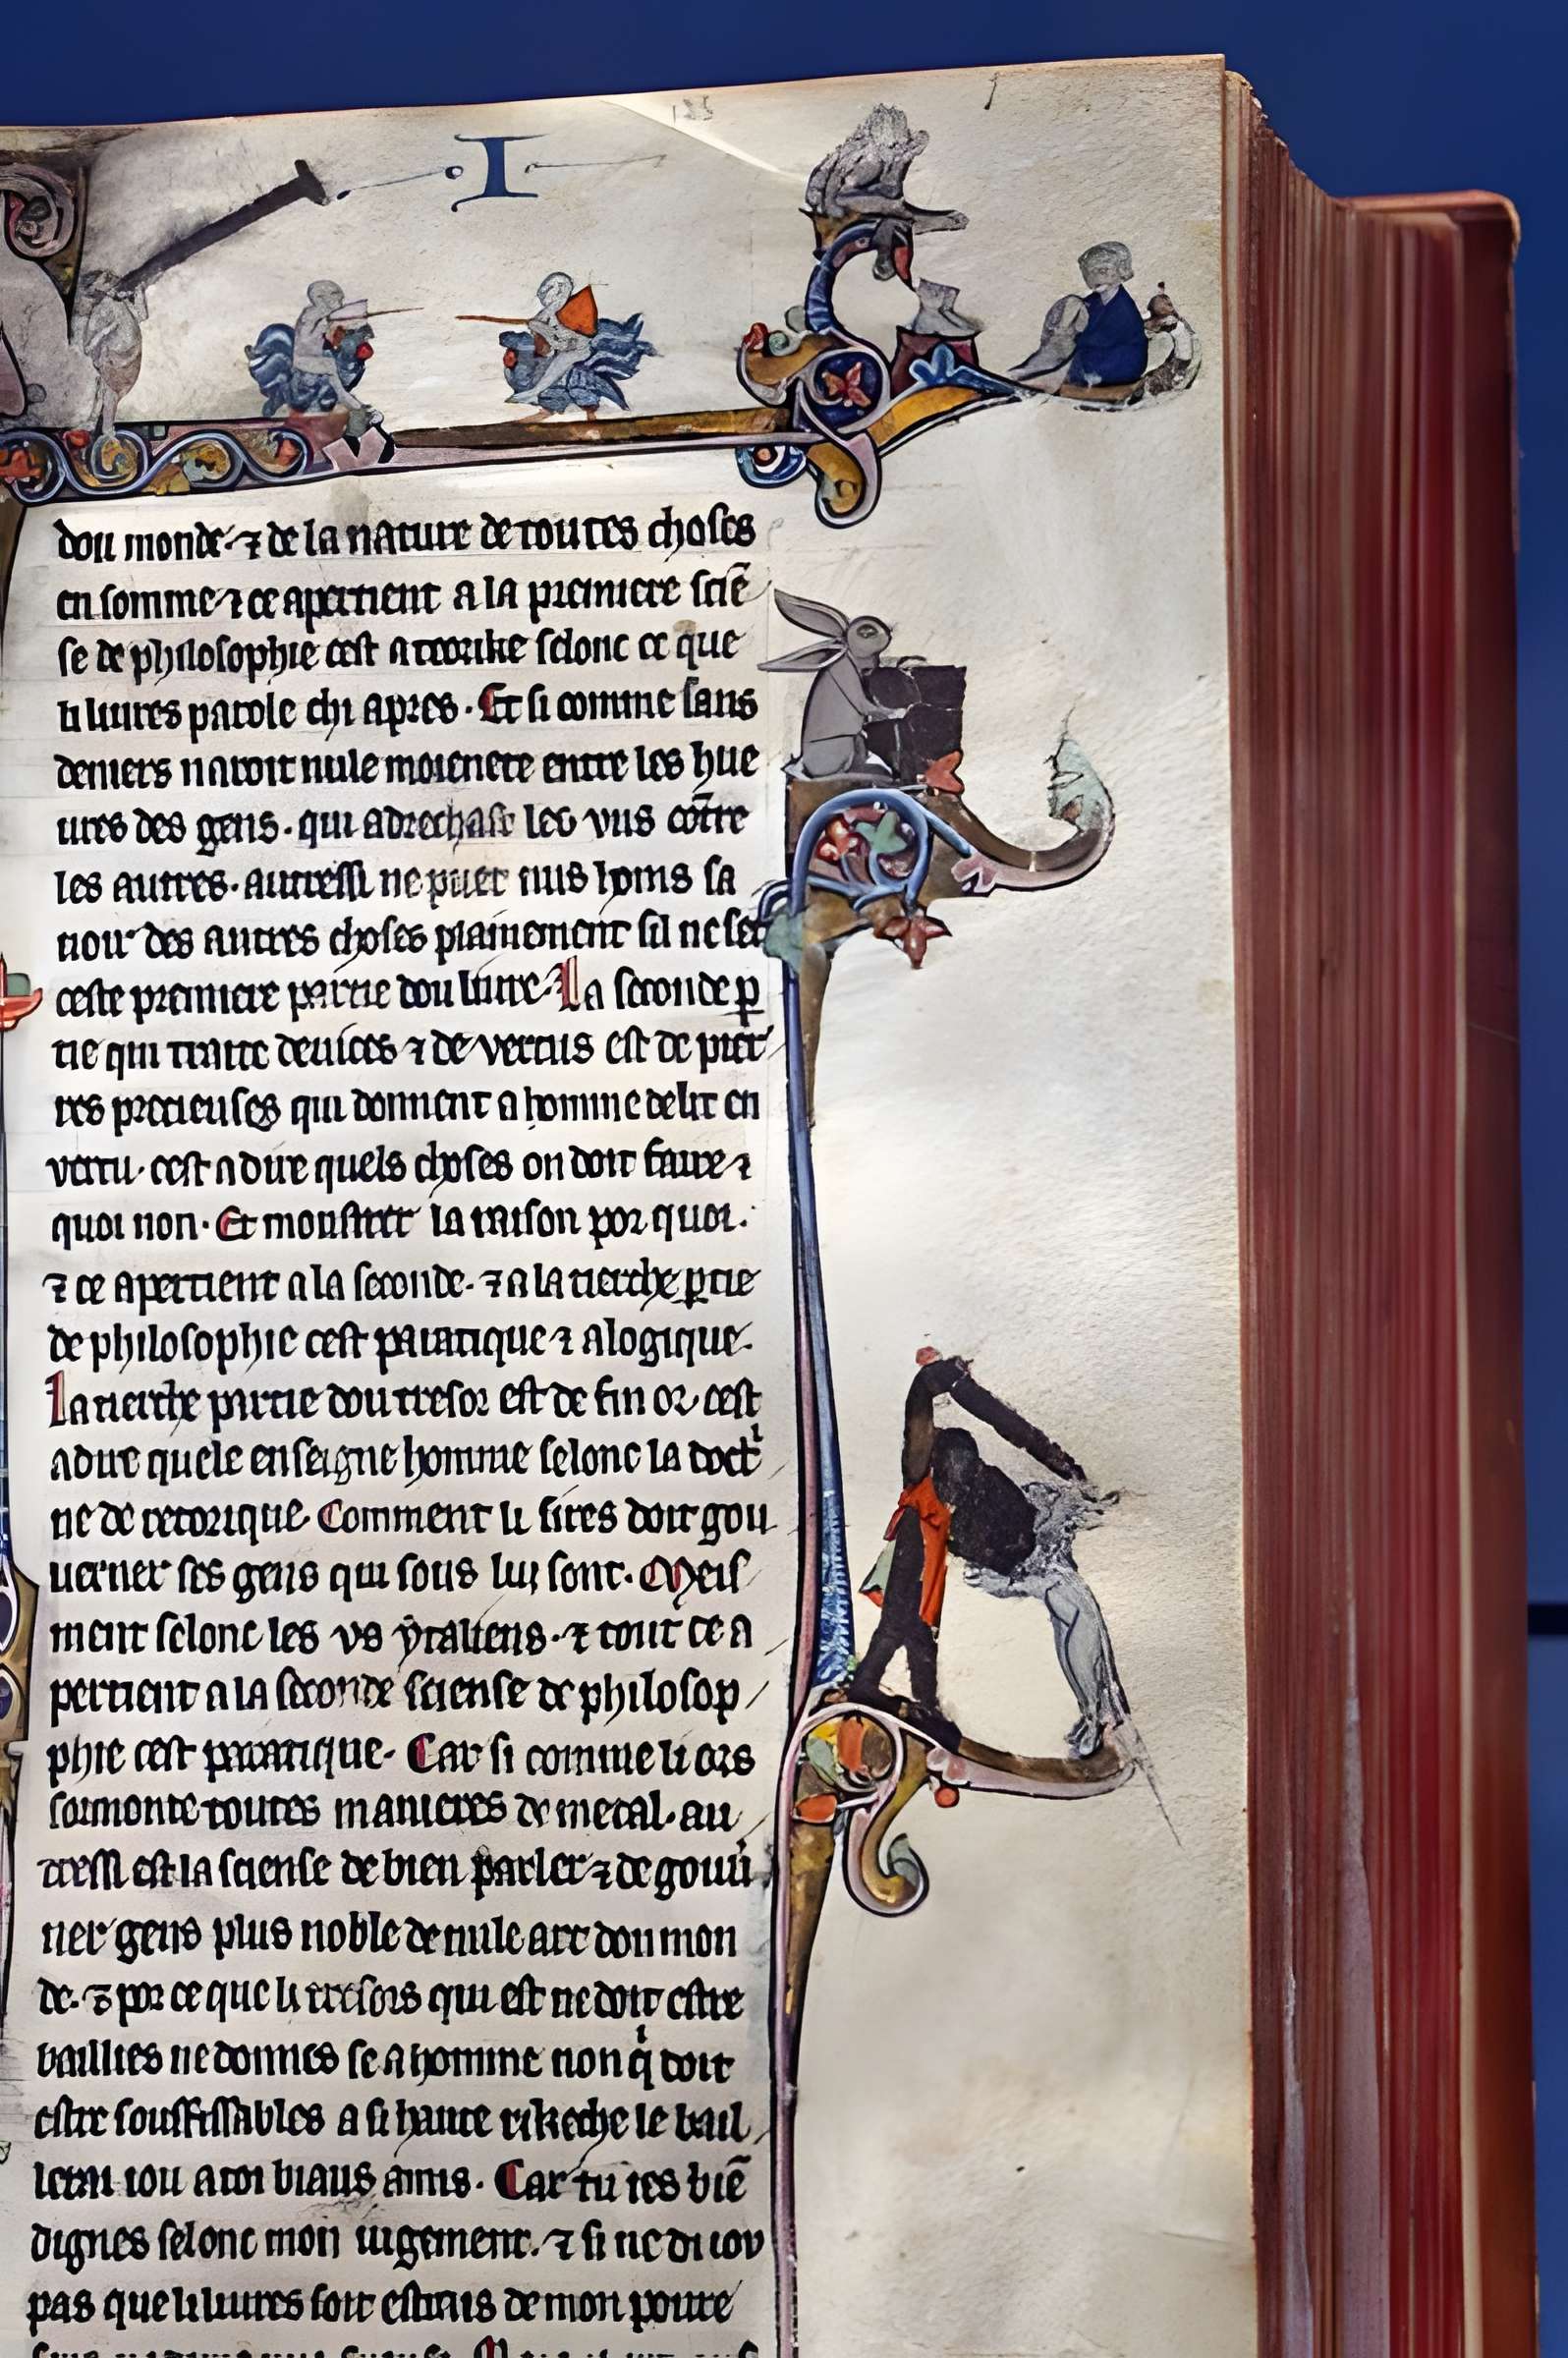 I
dou monde ⁊ de la nature de toutes choses
en somme ⁊ ce apertient a la premiere sciẽ
se de philosophie cest a teorike selonc ce que
li liures parole chi apres. Et si comme sans
deniers naroit nule moienete entre les hue
ures des gens. qui adrechast les vns cõtre
les autres. autressi ne puet nus homs sa
uoir des autres choses plainement sil ne set
ceste premiere partie dou liure. La seconde ꝑ
tie qui traite de uices ⁊ de vertus est de pier
res precieuses qui donnent a homme delit en
vertu. cest a dire quels choses on doit faire ⁊
quoi non. Et monstrer la raison por quoi.
⁊ ce apertient a la seconde. ⁊ a la tierche ꝑtie
de philosophie cest pratique ⁊ a logique.
La tierche partie dou tresor est de fin or. cest
a dire quele enseigne homme selonc la doctⁱ
ne de retorique. Comment li sires doit gou
uerner ses gens qui sous lui sont. Meis
ment selonc les vs ytaliens. ⁊ tout ce a
pertient a la seconde sciense de philosop
phie cest pratique. Car si comme li ors
sormonte toutes manieres de metal. au
tressi est la sciense de bien parler ⁊ de gouu̾
ner gens plus noble de nule art dou mon
de. ⁊ por ce que li tresors qui est ne doit estre
baillies ne donnes se a homme non qⁱ doit
estre souffissables a si haute rikeche le bail
lerai iou a toi biaus amis. Car tu ies biẽ
dignes selonc mon iugement. ⁊ si ne di iou
pas que li liures soit estrais de mon poure